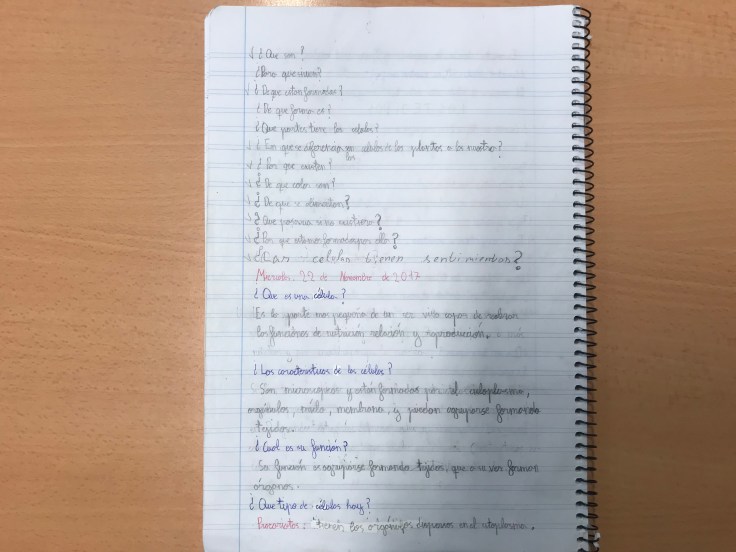 ✓ ¿Que son?
¿Para que sirven?
✓ ¿De que estan formadas?
¿De que forma es?
¿Que partes tiene las celulas?
✓ ¿En que se diferencian las celulas de las plantas a las nuestras?
✓ ¿Por que existen?
✓ ¿De que color son?
✓ ¿De que se alimentan?
✓ ¿Que pasaria si no existiera?
✓ ¿Por que estamos formados por ella?
✓ ¿Las celulas tienen sentimientos?
Miercoles, 22 de Noviembre de 2017
¿Que es una célula?
Es la parte mas pequeña de un ser vivo capaz de realizar
las funciónes de nutrición relación y reproducción.
¿Las caracteristicas de las células?
Son microscopicas y están formadas por el citoplasma,
orgánulos, núcleo, membrana, y puedan agruparse formando
tejidos.
¿Cual es su función?
Su función es agruparse formando tejidos, que a su vez forman
órganos.
¿Que tipo de células hay?
Procariotas: tienen los orgánulos dispersos en el citoplasma.